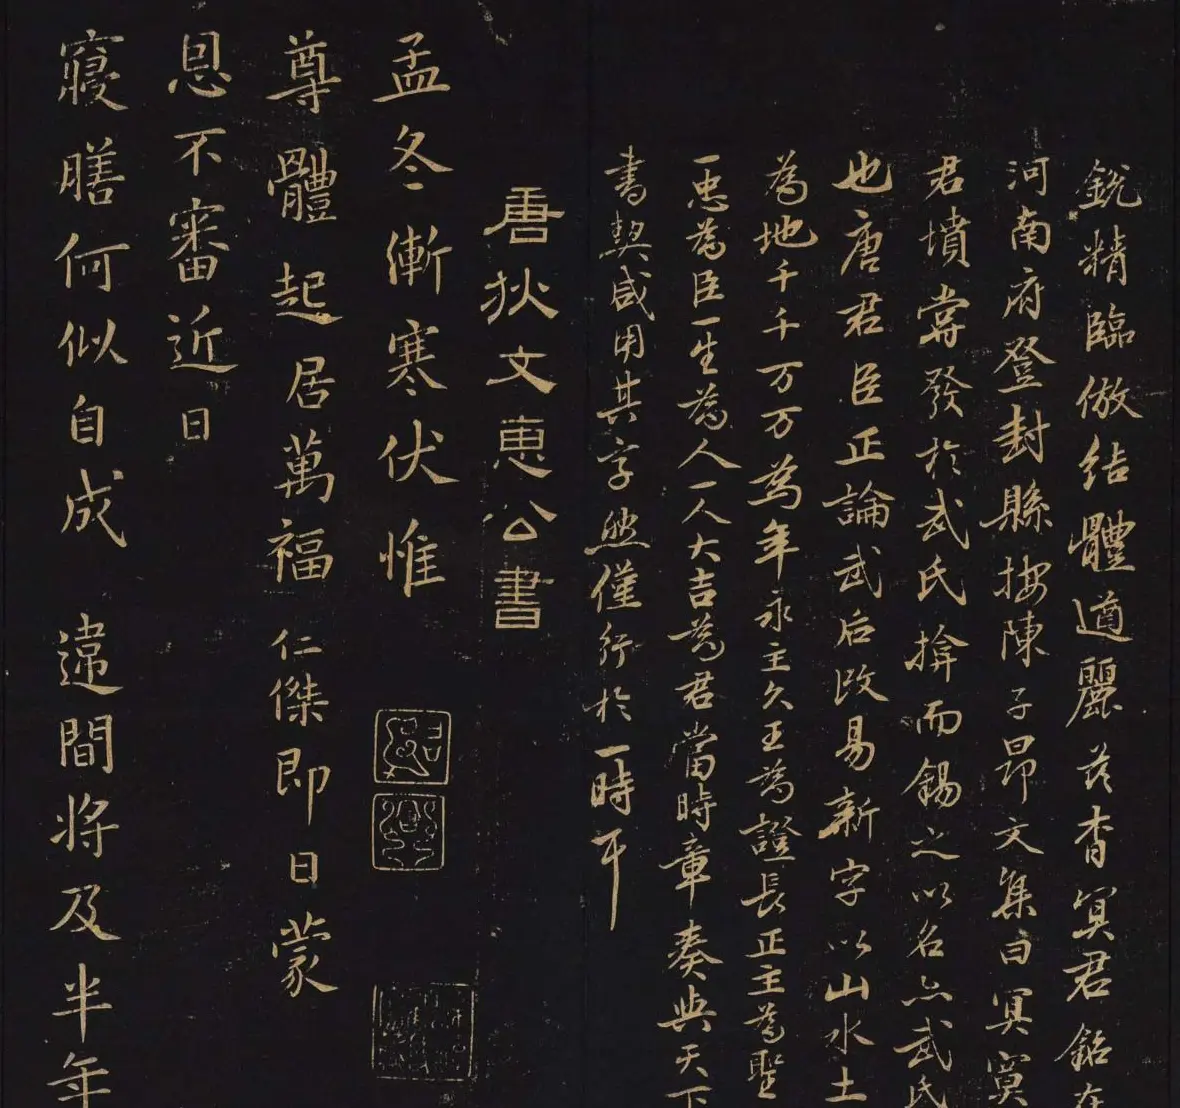 銳精臨倣結體遒麗茲杳冥君銘在
河南府登封縣按陳子昂文集曰冥寞
君墳嘗發於武氏揜而錫之以名亦武氏
也唐君臣正論武后改易新字以山水土
為地千千万万為年永主久王為證長正主為聖
一忠為臣一生為人一人大吉為君當時章奏與天下
書契咸用其字然僅行於一時耳
唐狄文惠公書
孟冬漸寒伏惟
尊體起居萬福仁傑即日蒙
恩不審近日
寢膳何似自成 違間將及半年